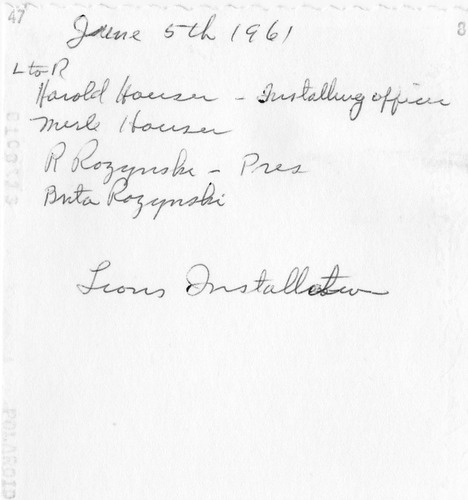 47
8
June 5th 1961
L to R
Harold Houser - Installing officer
Merle Houser
R Rozynski - Pres
Brita Rozynski
Lions Installation
POLAROID